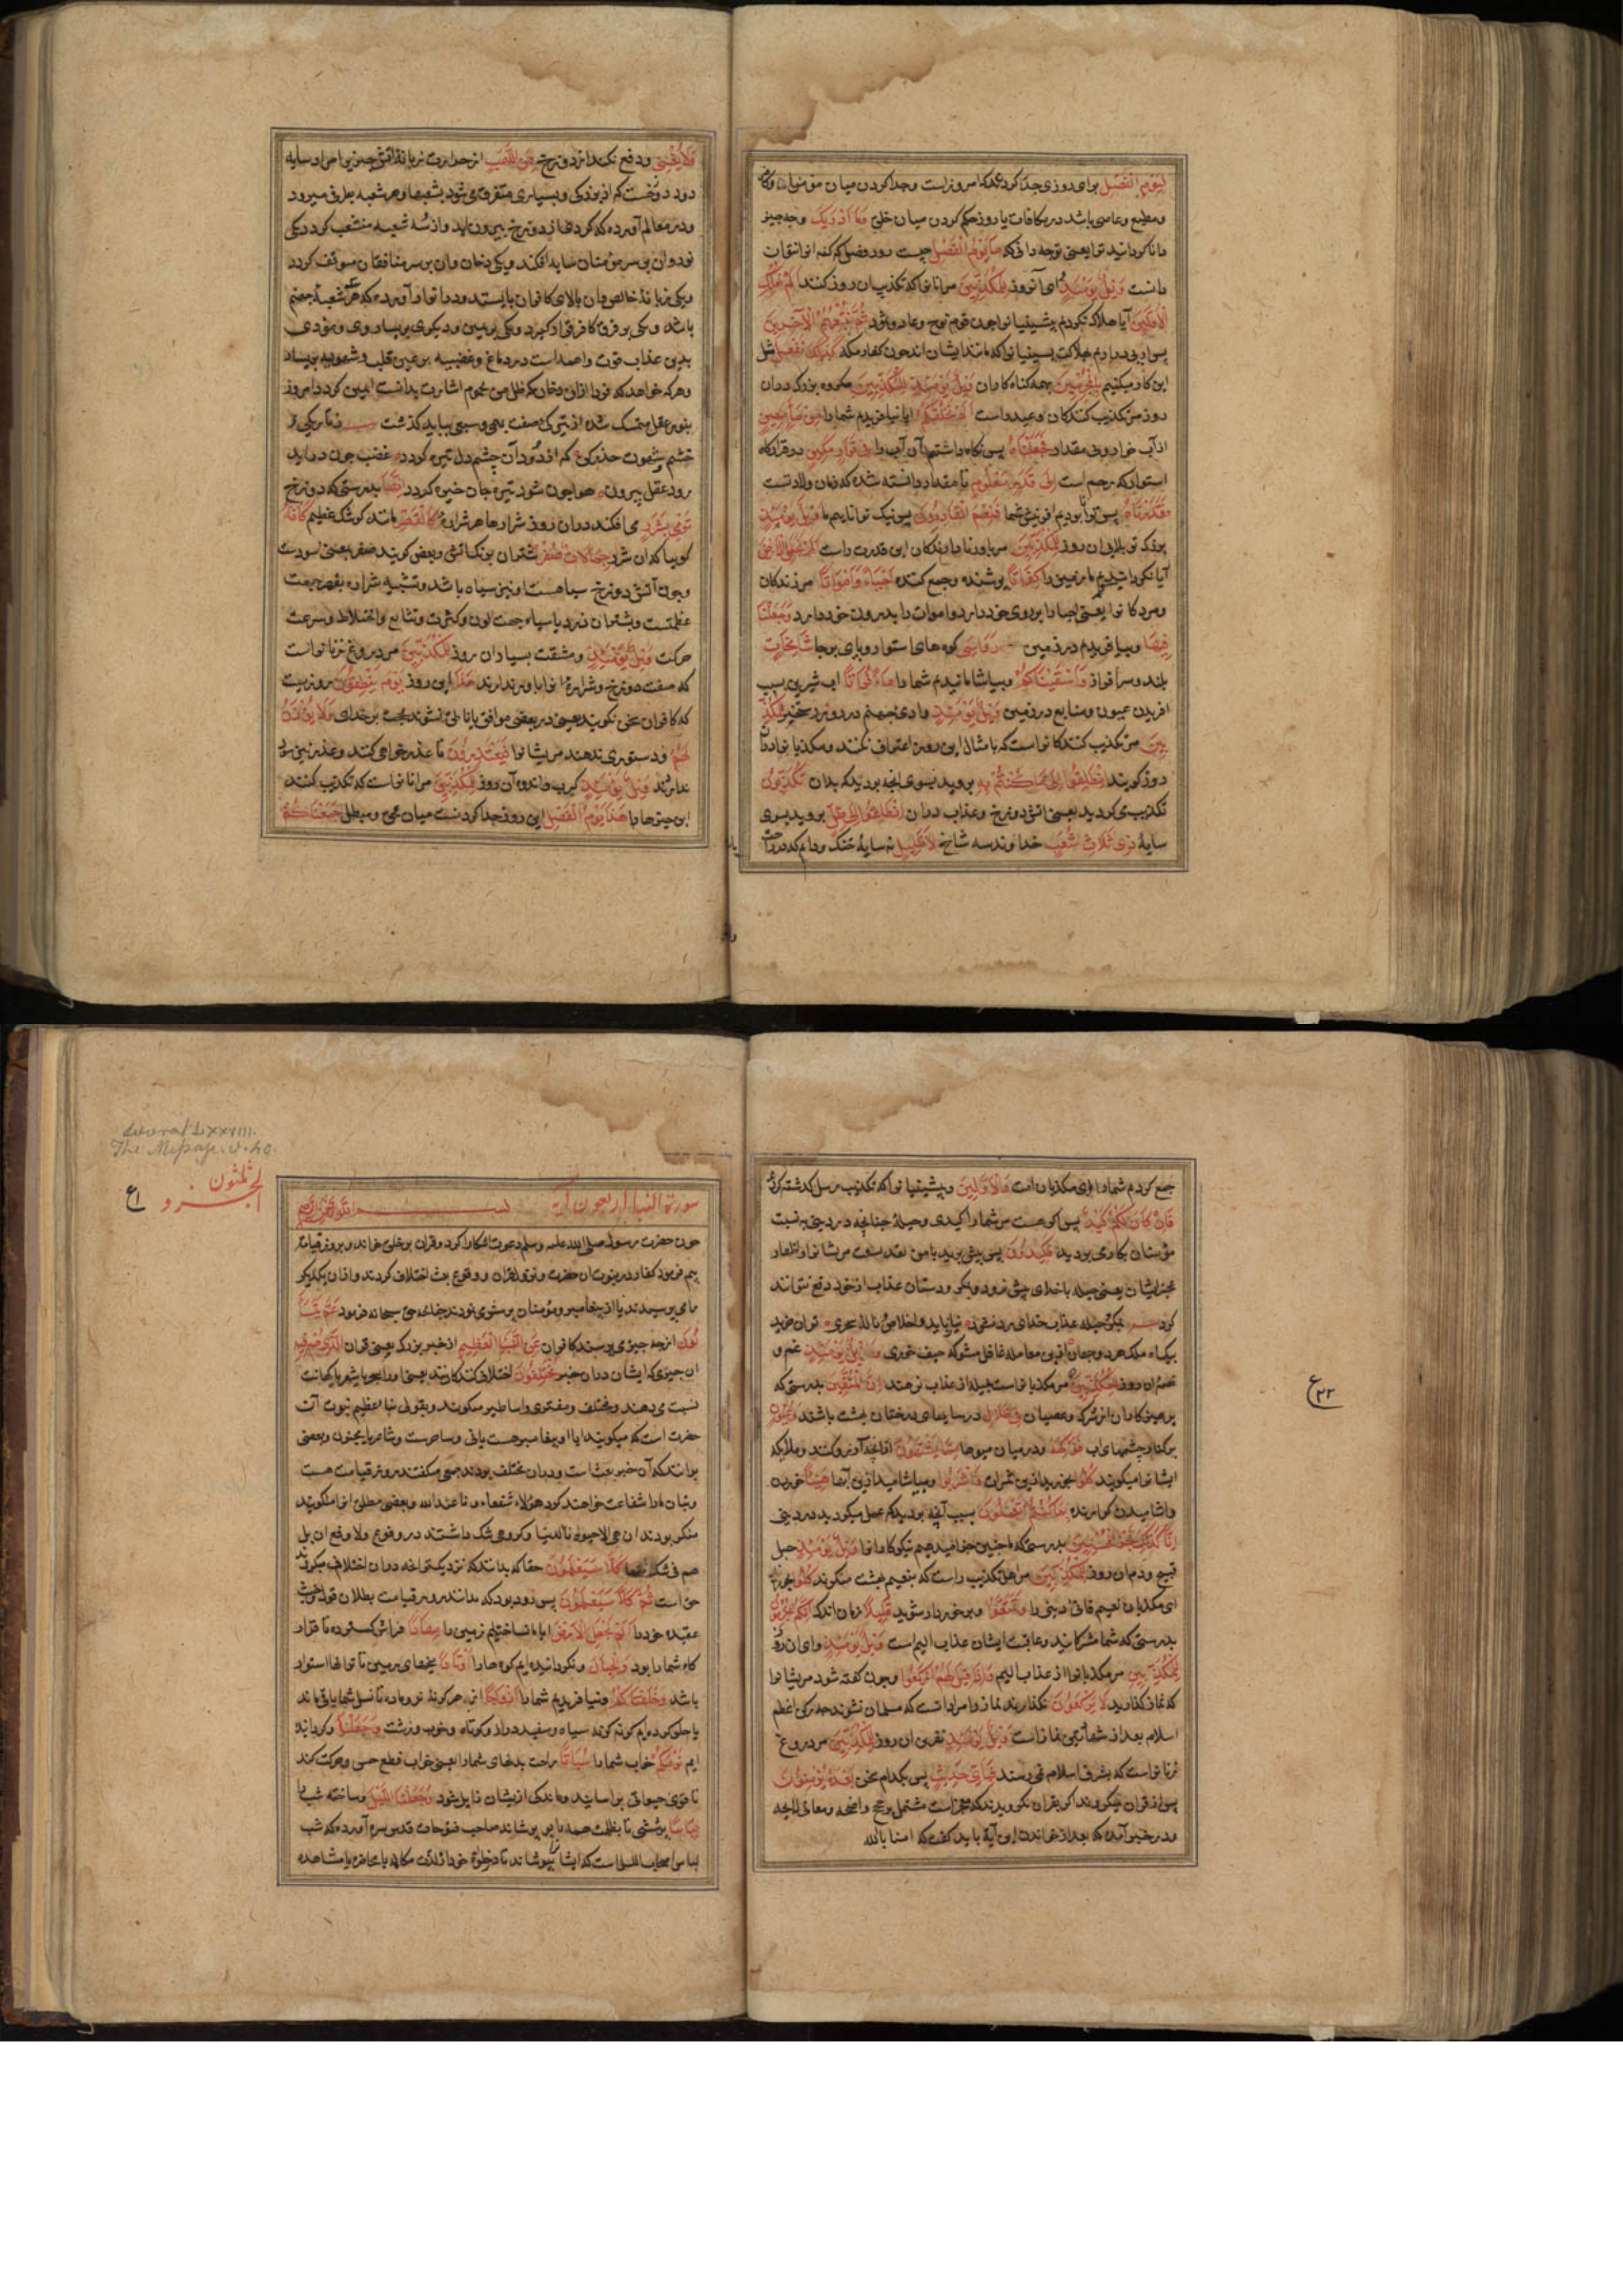 لِيَوْمِ الْفَصْلِ برای روزی جدا کردن که امروزاست وجدا کردن میان مؤمنان
ومطیع وعاصی باشد در مکافات یا روز حکم کردن میان خلق وَمَا أَدْرَاكَ وچه چیز
دانا کردانید ترا یعنی توچه دانی که مَا يَوْمُ الْفَصْلِ چیست روز فصل که کنه انرا نتوان
دانست وَيْلٌ يَوْمَئِذٍ وای آنروز لِلْمُكَذِّبِينَ مرانانرا که تکذیب ان روز کنند أَلَمْ نُهْلِكِ
الْأَوَّلِينَ آیا هلاک نکردیم پیشینیانرا چون قوم نوح وعاد وثمود ثُمَّ نُتْبِعُهُمُ الْآخِرِينَ
پس از پی دراریم هلاکت پسینیانرا که مانند ایشان اند چون کفار مکه كَذَلِكَ نَفْعَلُ مثل
این کار میکنیم بِالْمُجْرِمِينَ بهمه کناه کاران وَيْلٌ يَوْمَئِذٍ لِلْمُكَذِّبِينَ مکروه بزرک دران
روز مر تکذیب کنندکان وعید راست أَلَمْ نَخْلُقْكُمْ ایا نیافریدم شمارا مِنْ مَاءٍ مَهِينٍ
از آب خوار وبی مقدار فَجَعَلْنَاهُ پس نکاه داشتیم آن آب را فِي قَرَارٍ مَكِينٍ در قرارکاه
استوار که رحم است إِلَى قَدَرٍ مَعْلُومٍ تا مقدار دانسته شده که زمان ولادتست
فَقَدَرْنَا پس توانا بودیم افرینش شما فَنِعْمَ الْقَادِرُونَ پس نیک توانایم ما وَيْلٌ يَوْمَئِذٍ
بزرک تر بلایی ان روز لِلْمُكَذِّبِينَ مر باور ندارندکان این قدرت راست أَلَمْ نَجْعَلِ الْأَرْضَ
آیا نکردانیدیم ما زمین را كِفَاتًا پوشنده وجمع کننده أَحْيَاءً وَأَمْوَاتًا مر زندکان
ومردکانرا یعنی احیا را بر روی خود دارد واموات را بدرون خود دارد وَجَعَلْنَا
فِيهَا وبیافریدم در زمین رَوَاسِيَ کوه‌های استوار وپای برجا شَامِخَاتٍ
بلند وسرافراز وَأَسْقَيْنَاكُمْ وبیاشامانیدم شمارا مَاءً فُرَاتًا آب شیرین بسبب
افریدن عیون ومنابع در زمین وَيْلٌ يَوْمَئِذٍ وادی جهنم در روز رستخیز لِلْمُكَذِّ
بِينَ مر تکذیب کنندکانراست که بامثال این روز اعتراف نکنند ومکذبانرا دران
روز کویند انْطَلِقُوا إِلَى مَا كُنْتُمْ بِهِ بروید بسوی انچه بودید که بدان تُكَذِّبُونَ
تکذیب می کردید یعنی اتش دوزخ وعذاب دران انْطَلِقُوا إِلَى ظِلٍّ بروید بسوی
سایهٔ ذِي ثَلَاثِ شُعَبٍ خداوند سه شاخ لَا ظَلِيلٍ نه سایهٔ خنک ودایم که در راحت
وَلَا يُغْنِي ودفع نکند از دوزخ مِنَ اللَّهَبِ از حرارت زبانهٔ اتش چیزیرا مراد سایه
دود دوزخست که از بزرکی وبسیاری متفرق می شود بشعبها وهر شعبه بطرفی میرود
ودر معالم آورده که کردنها از دوزخ بیرون اید واز سه شعبه منشعب کردد یکی
نور وان بر سر مؤمنان سایه افکند ویکی دخان وان بر سر منافقان موقف کردد
ویکی زبانهٔ خالص وان بالای کافران بایستد ودر انوار آورده که هر شعبهٔ جهنم
باشد ویکی بر فرق کافر قرار کیرد ویکی بر یمین ودیکری بر یسار
بدین عذاب قوت واصداست در دماغ وغضبیه بر یمین قلب وشهویه بر یسار
وهرکه خواهد که فردا ازان دخان که ظل من یحموم اشارت بدانست ایمن کردد امروز
بنور عقل متمسک شده از تیرکی صفت بهیمی وسبعی بباید کذشت ز تاریکی
خشم وشهوت حذر کن که از دود آن چشم دل تیره کردد غضب چون دراید
رود عقل بیرون هوا چون شود تیره جان خیره کردد إِنَّهَا بدرستی که دوزخ
تَرْمِي بِشَرَرٍ می افکند دران روز شرارها هر شراره كَالْقَصْرِ مانند کوشک عظیم كَأَنَّهُ
کوییا که ان شرر جِمَالَاتٌ صُفْرٌ شتران بزنک اتش وبعضی کویند صفر یعنی اسودست
وچون آتش دوزخ سیاهست او نیز سیاه باشد وتشبیه شراره بقصر جهت
عظمتست وبشتران زرد یا سیاه جهت لون وکثرت وتتابع واختلاط وسرعت
حرکت وَيْلٌ يَوْمَئِذٍ ومشقت بسیار ان روز لِلْمُكَذِّبِينَ مر دروغ زنانراست
که صفت دوزخ وشرارهٔ انرا باور ندارند هَذَا این روز يَوْمُ لَا يَنْطِقُونَ روزیست
که کافران سخن نکویند یعنی در بعضی مواقف یا ناطق نشوند بحجت بر خدای وَلَا يُؤْذَنُ
لَهُمْ ودستوری ندهند مریشانرا فَيَعْتَذِرُونَ تا عذر خواهی کنند وعذر نیز
ندارند وَيْلٌ يَوْمَئِذٍ کرب واندوه آن روز لِلْمُكَذِّبِينَ مرانانراست که تکذیب کنند
این چیزها را هَذَا يَوْمُ الْفَصْلِ این روز جدا کردنست میان محق ومبطل جَمَعْنَاكُمْ
جمع کردم شمارا ای مکذبان امت وَالْأَوَّلِينَ وپیشینیانرا که تکذیب رسل کذشته کردند
فَإِنْ كَانَ لَكُمْ كَيْدٌ پس اکر هست مر شمارا کیدی وحیلهٔ چنانچه در دنیا به نسبت
مؤمنان بکار می بردید فَكِيدُونِ پس پیش برید با من
عجز ایشان یعنی حیله با خدای پیش نرود وبمکر ودستان عذاب از خود دفع نتوانند
کرد بمکر وحیله عذاب خدای رد نشود نیاز باید واخلاص ونالهٔ سحری توان خرید
بیک آه ملک هر دو جهان ازین معامله غافل مشو که حیف خوری وَيْلٌ يَوْمَئِذٍ غم و
ان روز لِلْمُكَذِّبِينَ مر مکذبانراست حیله از عذاب نرهند إِنَّ الْمُتَّقِينَ بدرستی که
پرهیزکاران از شرک وعصیان فِي ظِلَالٍ در سایهای درختان بهشت باشند وَعُيُونٍ
بر کنار چشمهای اب وَفَوَاكِهَ ودر میان میوها مِمَّا يَشْتَهُونَ از انچه آرزو کنند وملایکه
ایشانرا میکویند كُلُوا بخورید ازین ثمرات وَاشْرَبُوا وبیاشامید ازین آبها هَنِيئًا خوردن
واشامیدن کوارنده بِمَا كُنْتُمْ تَعْمَلُونَ بسبب آنچه بودید که عمل میکردید در دنیا
إِنَّا كَذَلِكَ نَجْزِي الْمُحْسِنِينَ بدرستی که ما همچنین جزا میدهیم نیکوکارانرا وَيْلٌ يَوْمَئِذٍ
قبیح ودم ان روز لِلْمُكَذِّبِينَ مر اهل تکذیب راست که بنعیم بهشت نمیکروند كُلُوا بخورید
ای مکذبان نعیم فانی دنیا را وَتَمَتَّعُوا وبرخوردار شوید قَلِيلًا زمان اندک إِنَّكُمْ مُجْرِمُونَ
بدرستی که شما مشرکانید وعاقبت ایشان عذاب الیم است وَيْلٌ يَوْمَئِذٍ وای ان روز
لِلْمُكَذِّبِينَ مر مکذبانرا از عذاب الیم وَإِذَا قِيلَ لَهُمُ ارْكَعُوا وچون کفته شود مریشانرا
که نماز کذارید لَا يَرْكَعُونَ نکذارند نماز ومراد انست که مسلمان نشوند چه رکن اعظم
اسلام بعد از شهادتین نماز است وَيْلٌ يَوْمَئِذٍ نفرین ان روز لِلْمُكَذِّبِينَ مر دروغ
زنانراست که بشرف اسلام نمی رسند فَبِأَيِّ حَدِيثٍ پس بکدام سخن بَعْدَهُ يُؤْمِنُونَ
پس از قران میکروند اکر بقران نکرویدند که معجزاست مشتمل بر حجج واضحه ومعانی لایحه
ودر خبر آمده که بعد از خواندن این آیة باید کفت که امنا بالله
٢٢ ع
Soorat LXXVIII.
The Message. v. 40.
الجزو
ثلثون
ع ١
سورة النبا اربعون آیة بسم الله الرحمن الرحیم
چون حضرت رسول صلی الله علیه وسلم دعوت آشکارا کرد وقران بر خلق خواند وبروز قیامت
بیم فرمود کفار در نبوت ان حضرت ونزول قران ووقوع بعث اختلاف کردند واز ان یکدیکر
می پرسیدند یا از پیغامبر ومؤمنان پرسش می نمودند چنانچه حق سبحانه فرمود عَمَّ يَتَسَا
ءَلُونَ از چه چیز می پرسند کافران عَنِ النَّبَإِ الْعَظِيمِ از خبر بزرک یعنی قران الَّذِي هُمْ فِيهِ
ان چیزی که ایشان دران خبر مُخْتَلِفُونَ اختلاف کنندکانند یعنی اورا بسحر یا شعر یا کهانت
نسبت می دهند ومختلق ومفتری واساطیر میکویند وبقولی نبا عظیم نبوت آن
حضرت است که میکویند ایا او پیغامبر هست یا نی وساحرست وشاعر یا مجنون وبعضی
برانند که آن خبر بعث است ودران مختلف بودند جمعی میکفتند روز قیامت هست
وبتان مارا شفاعت خواهند کرد هؤلاء شفعاؤنا عند الله وبعضی مطلق انرا منکر
منکر بودند ان هی الا حیوتنا الدنیا وکروهی شک داشتند در وقوع ولا وقع ان بل
هم فی شک منها كَلَّا سَيَعْلَمُونَ حقا که بدانند که نزدیک نزع دران اختلاف میکردند
حق است ثُمَّ كَلَّا سَيَعْلَمُونَ پس زود بود که بدانند روز قیامت بطلان قول
عقیده خود را أَلَمْ نَجْعَلِ الْأَرْضَ ایا ما نساختیم زمین را مِهَادًا فراش کسترده تا قرار
کاه شما بود وَالْجِبَالَ ونکردانیده ایم کوه‌ها را أَوْتَادًا میخهای زمین تا توانها استوار
باشد وَخَلَقْنَاكُمْ وبیافریدم شمارا أَزْوَاجًا از هر کونه نر وماده تا نسل شما باقی ماند
یا خلق کرده ایم کونه کونه سیاه وسفید ودراز وکوتاه وخوب وزشت وَجَعَلْنَا وکردانیده
ایم نَوْمَكُمْ خواب شمارا سُبَاتًا راحت بدنهای شما یعنی خواب قطع حس وحرکت کند
تا قوی حیوانی براسایند وماندکی ازیشان زایل شود وَجَعَلْنَا اللَّيْلَ وساخته شب را
لِبَاسًا پوششی تا بظلمت همه را بپوشاند صاحب فتوحات قدس سره آورده که شب
لباس اصحاب اللیل است که ایشانرا بپوشاند تا در خلوة خود لذت مکالمه یا محاضره یا مشاهده